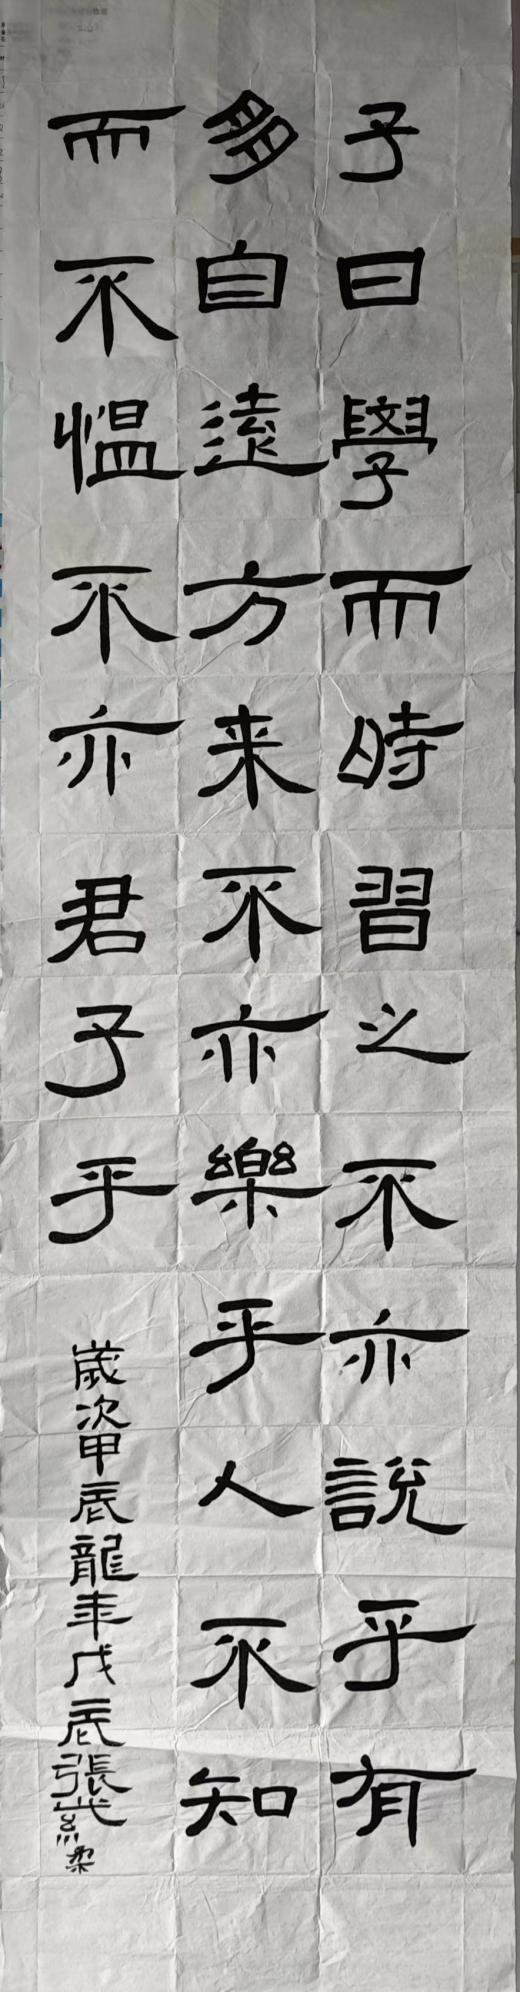 子曰學而時習之不亦說乎有
朋自遠方来不亦樂乎人不知
而不愠不亦君子乎
歲次甲辰龍年戊辰張